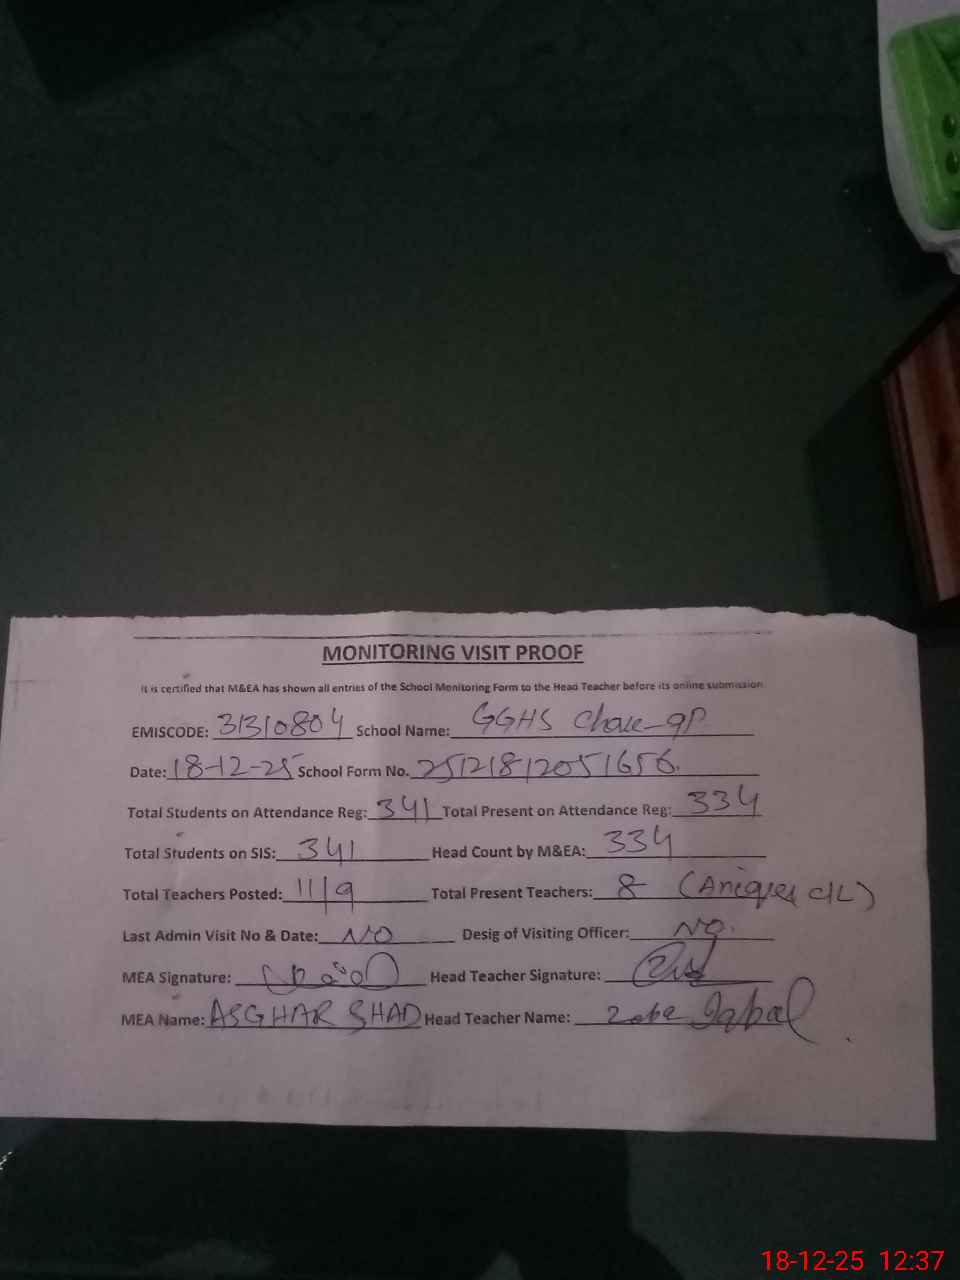 MONITORING VISIT PROOF
It is certified that M&EA has shown all entries of the School Monitoring Form to the Head Teacher before its online submission
EMISCODE: 31310804 School Name: GGHS
Date: 18-12-25 School Form No. 25121812051656
Total Students on Attendance Reg: 341 Total Present on Attendance Reg: 334
Total Students on SIS: 341 Head Count by M&EA: 334
Total Teachers Posted: 11/9 Total Present Teachers: 8
Last Admin Visit No & Date: NO Desig of Visiting Officer: NO.
MEA Signature: Head Teacher Signature:
MEA Name: ASGHAR SHAD Head Teacher Name: Iqbal
18-12-25 12:37